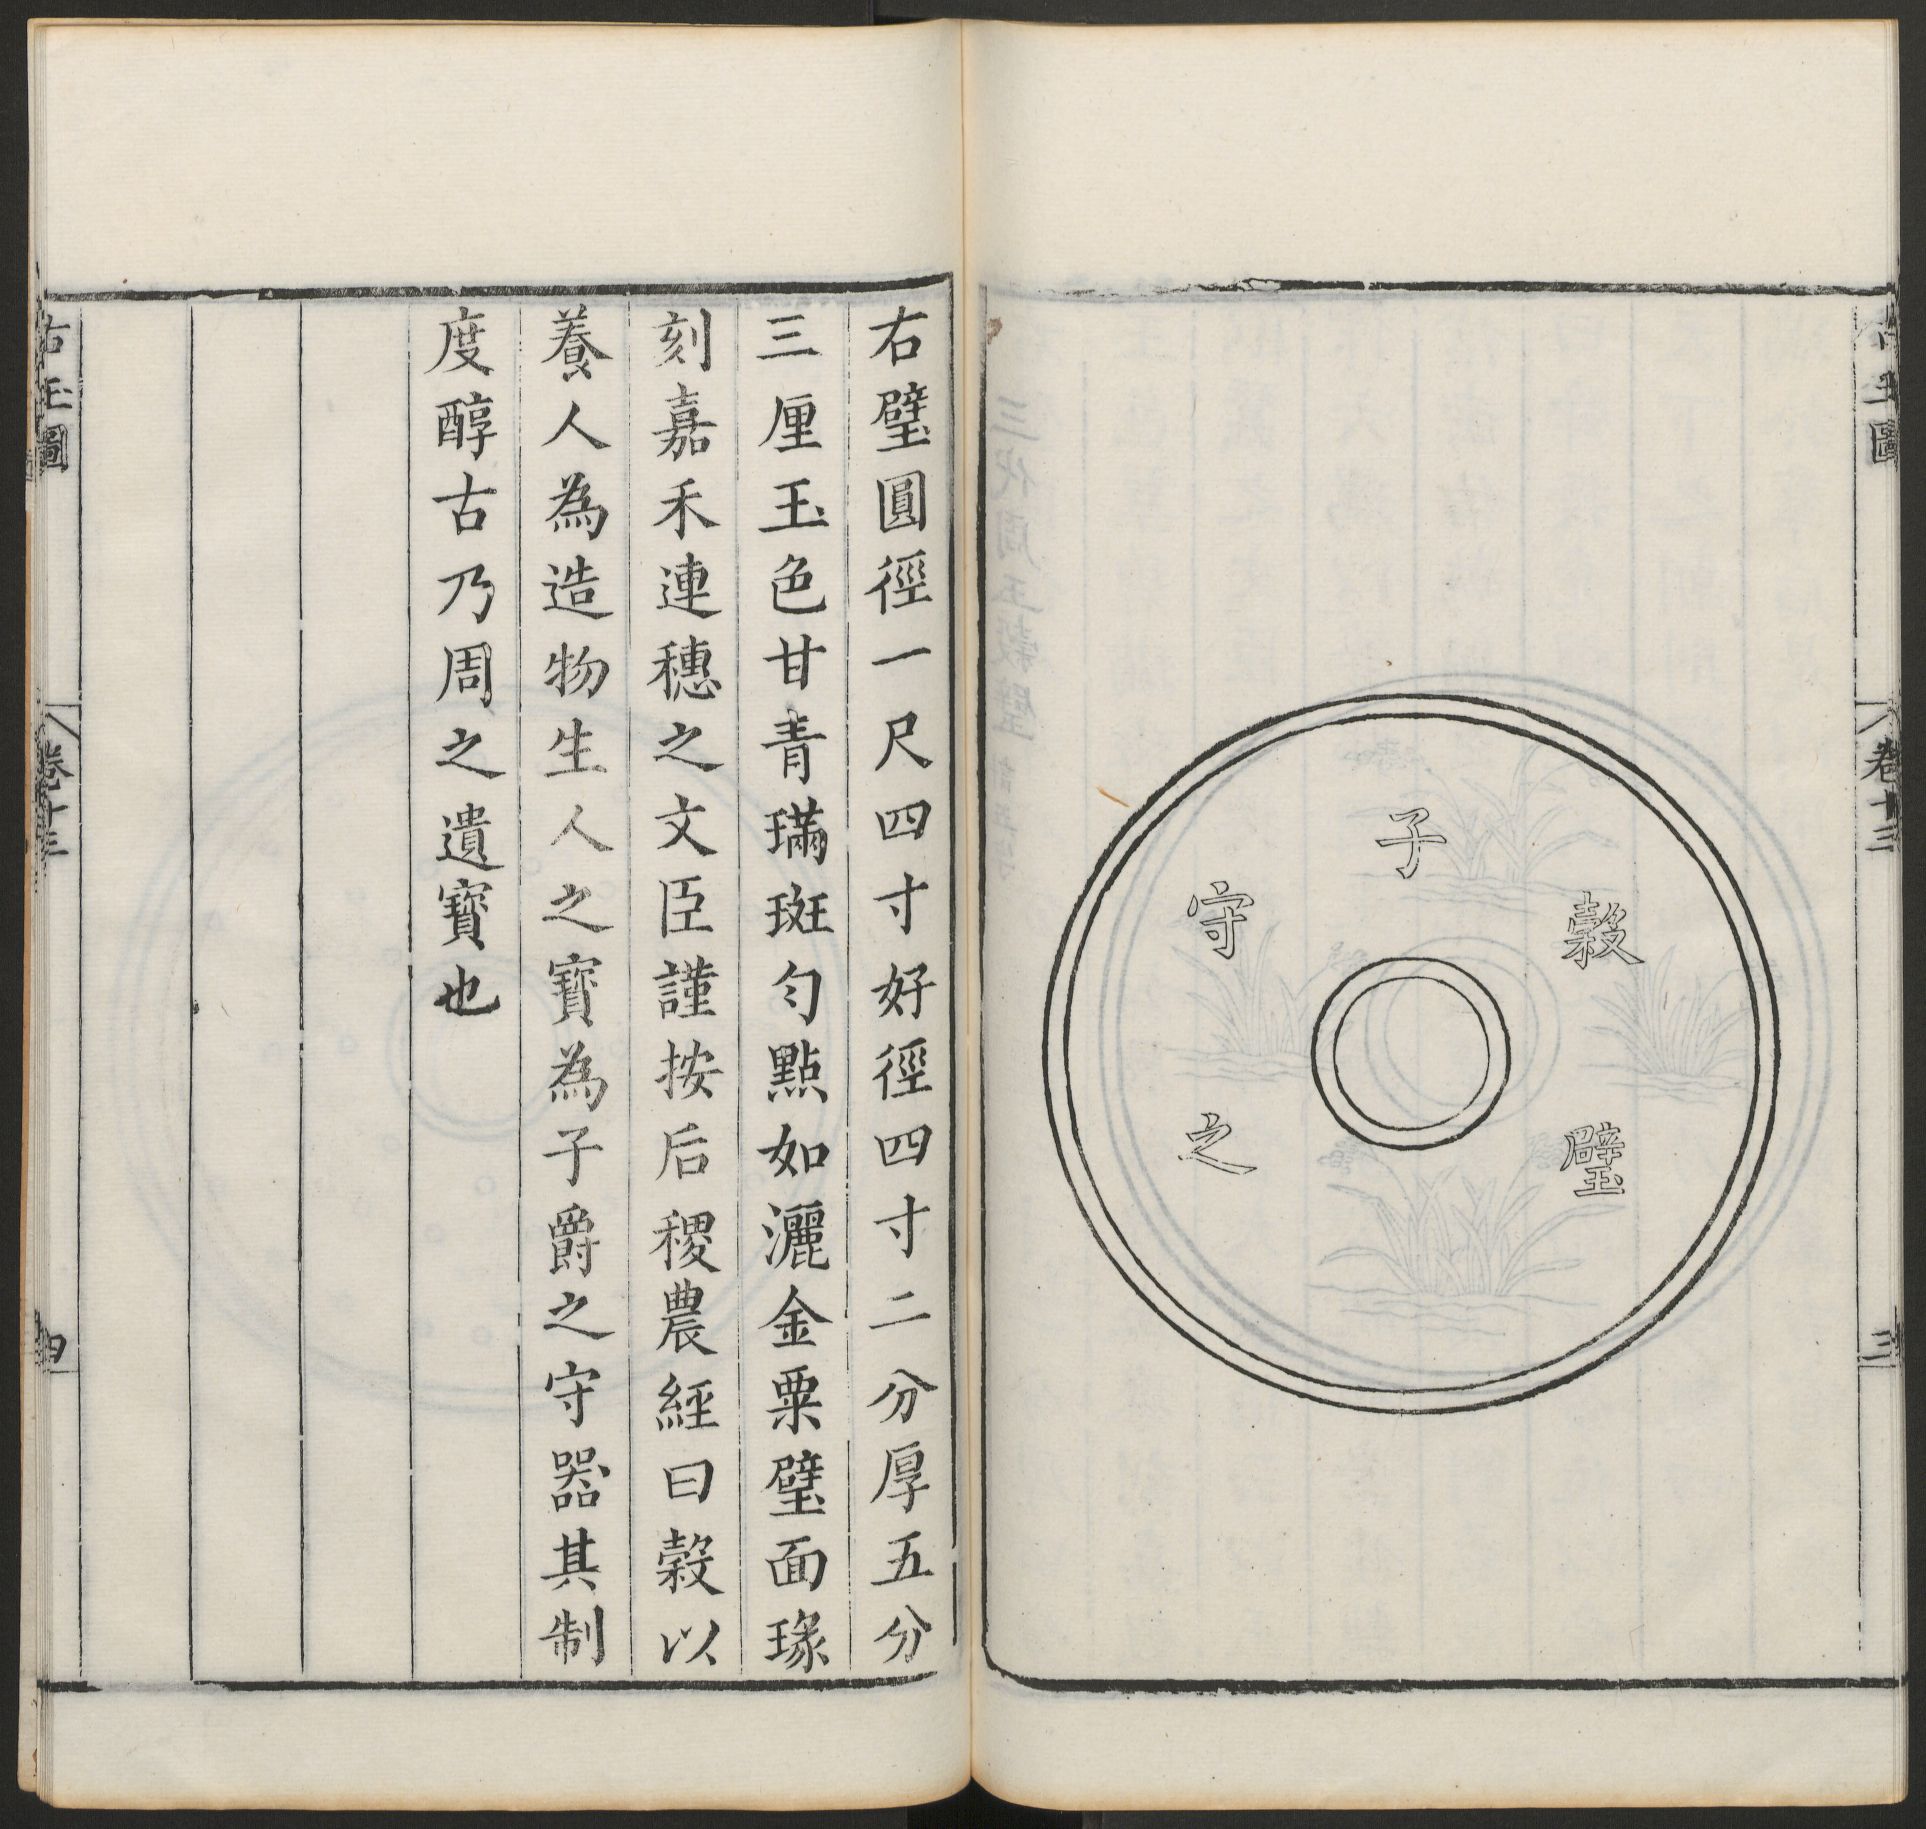 古玉圖 卷十三 三
榖璧
子
守之
右璧圓徑一尺四寸好徑四寸二分厚五分
三厘玉色甘青璊斑勻點如灑金粟璧面瑑
刻嘉禾連穗之文臣謹按后稷農經曰榖以
養人為造物生人之寶為子爵之守器其制
度醇古乃周之遺寶也
古玉圖 卷十三 四